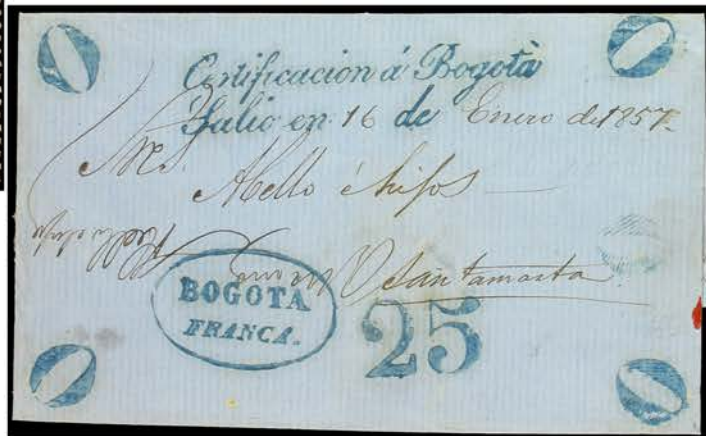 Certificacion á Bogotà
Salio en 16 de Enero de 1857.
Abello é hijos
Santamarta.
BOGOTA
FRANCA.
25